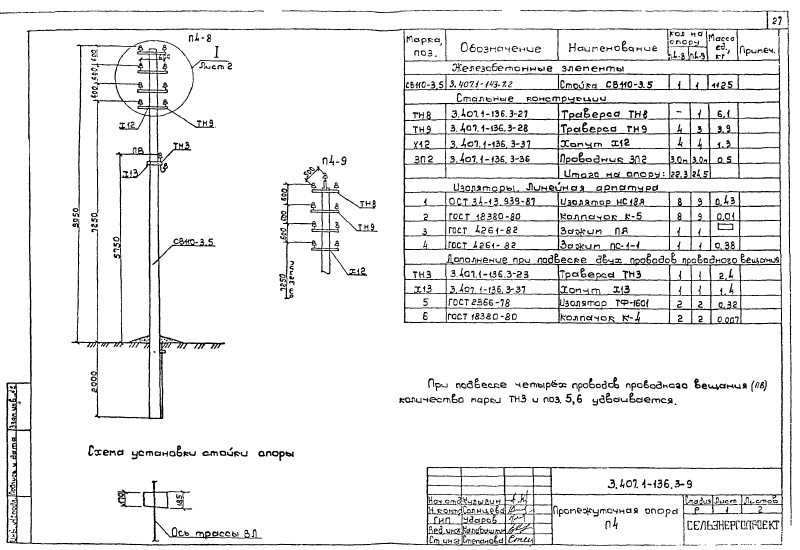 27
П4-8
I
Лист 2
600
600
600
Х12
ТН9
ПВ
ТН3
Х13
9050
7250
5750
СВ110-3.5
2000
П4-9
500
ТН8
600
600
600
ТН9
Х12
7250
от земли
Марка, поз. Обозначение Наименование Кол на опору П4-8 П4-9 Масса ед., кг Примеч.
Железобетонные элементы
СВ110-3,5 3.407.1-143.7.2 Стойка СВ110-3.5 1 1 1125
Стальные конструкции
ТН8 3.407.1-136.3-27 Траверса ТН8 – 1 6,1
ТН9 3.407.1-136.3-28 Траверса ТН9 4 3 3,9
Х12 3.407.1-136.3-37 Хомут Х12 4 4 1.3
ЗП2 3.407.1-136.3-36 Проводник ЗП2 3.0м 3.0м 0.5
Итого на опору: 22.3 24,5
Изоляторы. Линейная арматура
1 ОСТ 34-13.939-87 Изолятор НС18А 8 9 0,43
2 ГОСТ 18380-80 Колпачок К-5 8 9 0.01
3 ГОСТ 4261-82 Зажим ПА 1 1
4 ГОСТ 4261-82 Зажим ПС-1-1 1 1 0,38
Дополнение при подвеске двух проводов проводного вещания
ТН3 3.407.1-136.3-23 Траверса ТН3 1 1 2,4
Х13 3.407.1-136.3-37 Хомут Х13 1 1 1.4
5 ГОСТ 2366-78 Изолятор ТФ-1601 2 2 0.32
6 ГОСТ 18380-80 Колпачок К-4 2 2 0.007
При подвеске четырёх проводов проводного вещания (ПВ)
количество марки ТН3 и поз. 5,6 удваивается.
Схема установки стойки опоры
170
185
Ось трассы ВЛ
Инв. № подл. Подпись и дата Взам. инв. №
3.407.1-136.3-9
Нач. отд Кулыгин
Н. контр Солнцева
ГИП Ударов
Вед. инж Калабашкин
Ст. инж Степанова
Промежуточная опора
П4
Стадия Лист Листов
Р 1 2
СЕЛЬЭНЕРГОПРОЕКТ